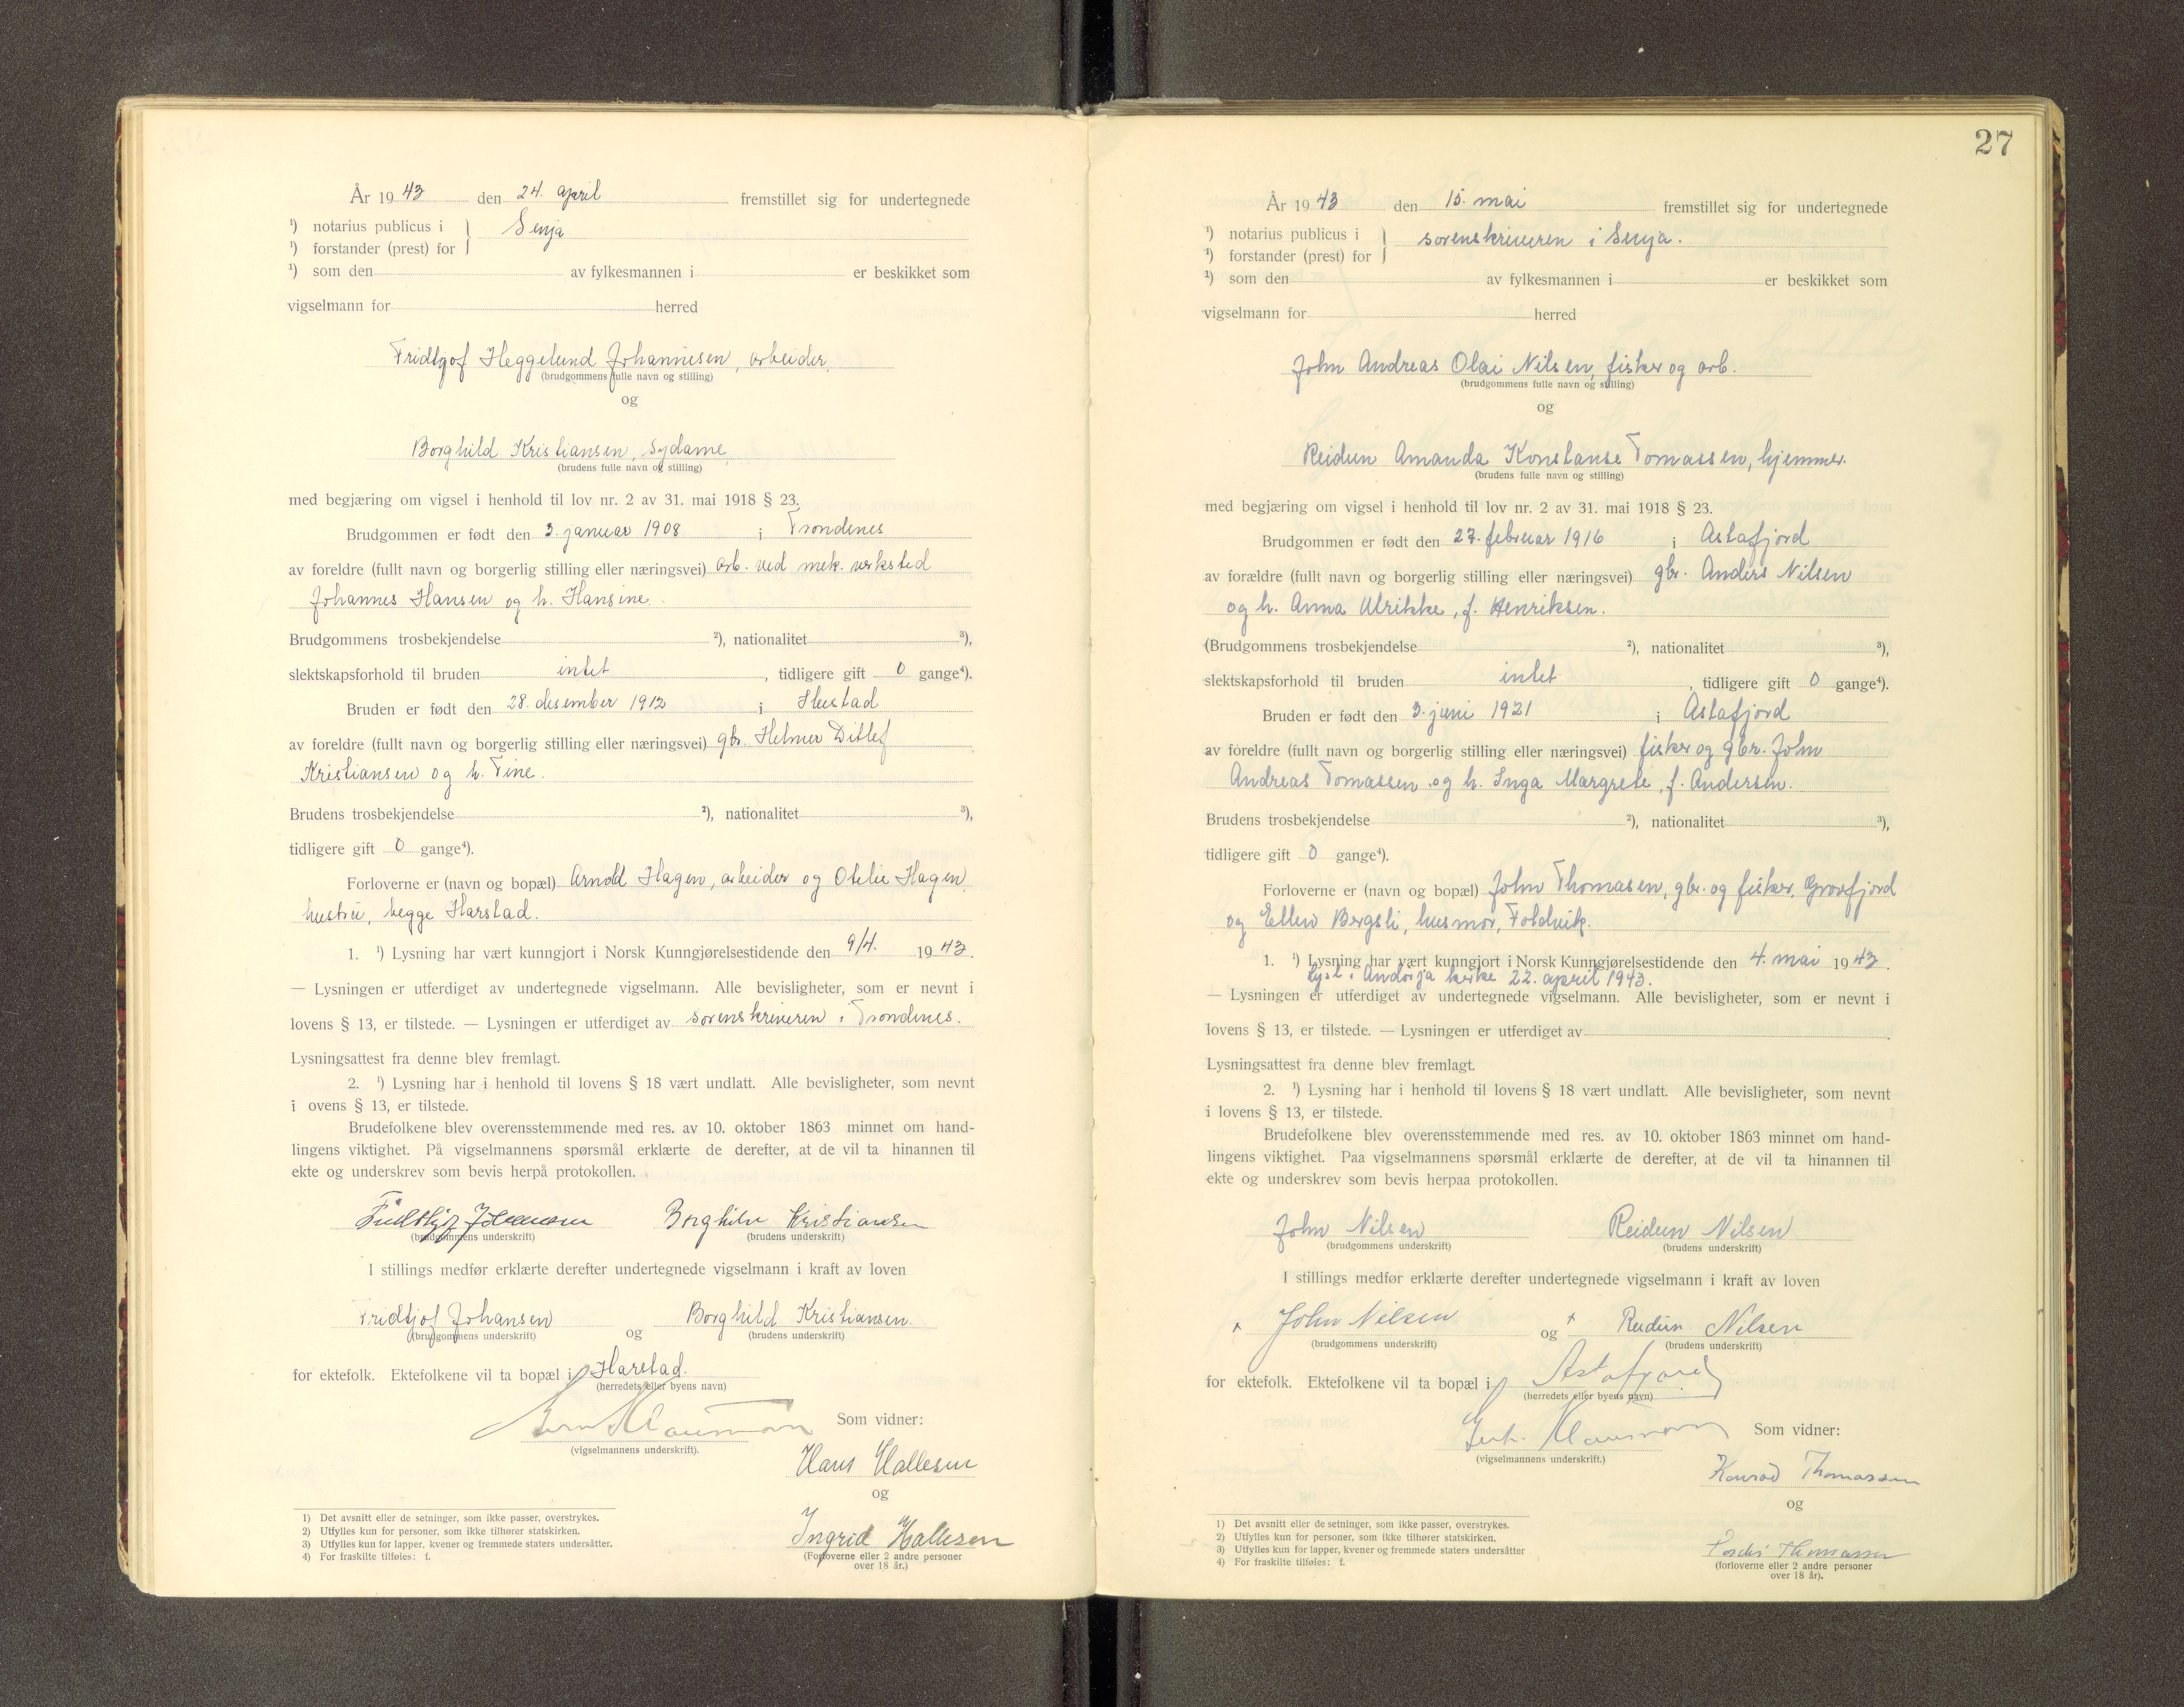 År 1943 den 24. april fremstillet sig for undertegnede
¹) notarius publicus i } Senja
¹) forstander (prest) for
¹) som den av fylkesmannen i er beskikket som
vigselmann for herred
Fridtjof Heggelund Johannesen, arbeider,
(brudgommens fulle navn og stilling)
og
Borghild Kristiansen, sydame
(brudens fulle navn og stilling)
med begjæring om vigsel i henhold til lov nr. 2 av 31. mai 1918 § 23.
Brudgommen er født den 3. januar 1908 i Trondenes
av foreldre (fullt navn og borgerlig stilling eller næringsvei) arb. ved mek. verksted
Johannes Hansen og h. Hansine.
Brudgommens trosbekjendelse ²), nationalitet ³),
slektskapsforhold til bruden intet, tidligere gift 0 gange⁴).
Bruden er født den 28. desember 1912 i Hustad
av foreldre (fullt navn og borgerlig stilling eller næringsvei) gbr. Helmer Ditlef
Kristiansen og h. Tine.
Brudens trosbekjendelse ²), nationalitet ³),
tidligere gift 0 gange⁴).
Forloverne er (navn og bopæl) Arnold Hagen, arbeider og Otelie Hagen
hustru, begge Harstad.
1. ¹) Lysning har vært kunngjort i Norsk Kunngjørelsestidende den 9/4. 1943.
— Lysningen er utferdiget av undertegnede vigselmann. Alle bevisligheter, som er nevnt i
lovens § 13, er tilstede. — Lysningen er utferdiget av sorenskriveren i Trondenes.
Lysningsattest fra denne blev fremlagt.
2. ¹) Lysning har i henhold til lovens § 18 vært undlatt. Alle bevisligheter, som nevnt
i ovens § 13, er tilstede.
Brudefolkene blev overensstemmende med res. av 10. oktober 1863 minnet om hand-
lingens viktighet. På vigselmannens spørsmål erklærte de derefter, at de vil ta hinannen til
ekte og underskrev som bevis herpå protokollen.
Fridthjof Johansen Borghild Kristiansen
(brudgommens underskrift) (brudens underskrift)
I stillings medfør erklærte derefter undertegnede vigselmann i kraft av loven
Fridtjof Johansen og Borghild Kristiansen.
(brudgommens underskrift) (brudens underskrift)
for ektefolk. Ektefolkene vil ta bopæl i Harstad.
(herredets eller byens navn)
Som vidner:
(vigselmannens underskrift).
Hans Hallesen
og
Ingrid Hallesen
(Forloverne eller 2 andre personer
over 18 år.)
1) Det avsnitt eller de setninger, som ikke passer, overstrykes.
2) Utfylles kun for personer, som ikke tilhører statskirken.
3) Utfylles kun for lapper, kvener og fremmede staters undersåtter.
4) For fraskilte tilføies: f.
27
År 1943 den 15. mai fremstillet sig for undertegnede
¹) notarius publicus i } sorenskriveren i Senja.
¹) forstander (prest) for
¹) som den av fylkesmannen i er beskikket som
vigselmann for herred
John Andreas Olai Nilsen, fisker og arb.
(brudgommens fulle navn og stilling)
og
Reidun Amanda Konstanse Tomassen, hjemmev.
(brudens fulle navn og stilling)
med begjæring om vigsel i henhold til lov nr. 2 av 31. mai 1918 § 23.
Brudgommen er født den 27. februar 1916 i Astafjord
av forældre (fullt navn og borgerlig stilling eller næringsvei) gbr. Anders Nilsen
og h. Anna Ulrikke, f. Henriksen.
(Brudgommens trosbekjendelse ²), nationalitet ³),
slektskapsforhold til bruden intet, tidligere gift 0 gange⁴).
Bruden er født den 3. juni 1921 i Astafjord
av foreldre (fullt navn og borgerlig stilling eller næringsvei) fisker og gbr. John
Andreas Tomassen og h. Inga Margrete, f. Andersen.
Brudens trosbekjendelse ²), nationalitet ³),
tidligere gift 0 gange⁴).
Forloverne er (navn og bopæl) John Thomasen, gbr. og fisker, Grovfjord
og Ellen Bergsli, husmor, Foldvik.
1. ¹) Lysning har vært kunngjort i Norsk Kunngjørelsestidende den 4. mai 1943.
Lyst i Andørja kirke 22. april 1943.
— Lysningen er utferdiget av undertegnede vigselmann. Alle bevisligheter, som er nevnt i
lovens § 13, er tilstede. — Lysningen er utferdiget av
Lysningsattest fra denne blev fremlagt.
2. ¹) Lysning har i henhold til lovens § 18 vært undlatt. Alle bevisligheter, som nevnt
i lovens § 13, er tilstede.
Brudefolkene blev overensstemmende med res. av 10. oktober 1863 minnet om hand-
lingens viktighet. Paa vigselmannens spørsmål erklærte de derefter, at de vil ta hinannen til
ekte og underskrev som bevis herpaa protokollen.
John Nilsen Reidun Nilsen
(brudgommens underskrift) (brudens underskrift)
I stillings medfør erklærte derefter undertegnede vigselmann i kraft av loven
x John Nilsen og x Reidun Nilsen
(brudgommens underskrift) (brudens underskrift)
for ektefolk. Ektefolkene vil ta bopæl i Astafjord
(herredets eller byens navn)
Som vidner:
(vigselmannens underskrift.)
Konrad Thomassen
og
Thomassen
(forloverne eller 2 andre personer
over 18 år).
1) Det avsnitt eller de setninger, som ikke passer, overstrykes.
2) Utfylles kun for personer, som ikke tilhører statskirken.
3) Utfylles kun for lapper, kvener og fremmede staters undersåtter
4) For fraskilte tilføies: f.